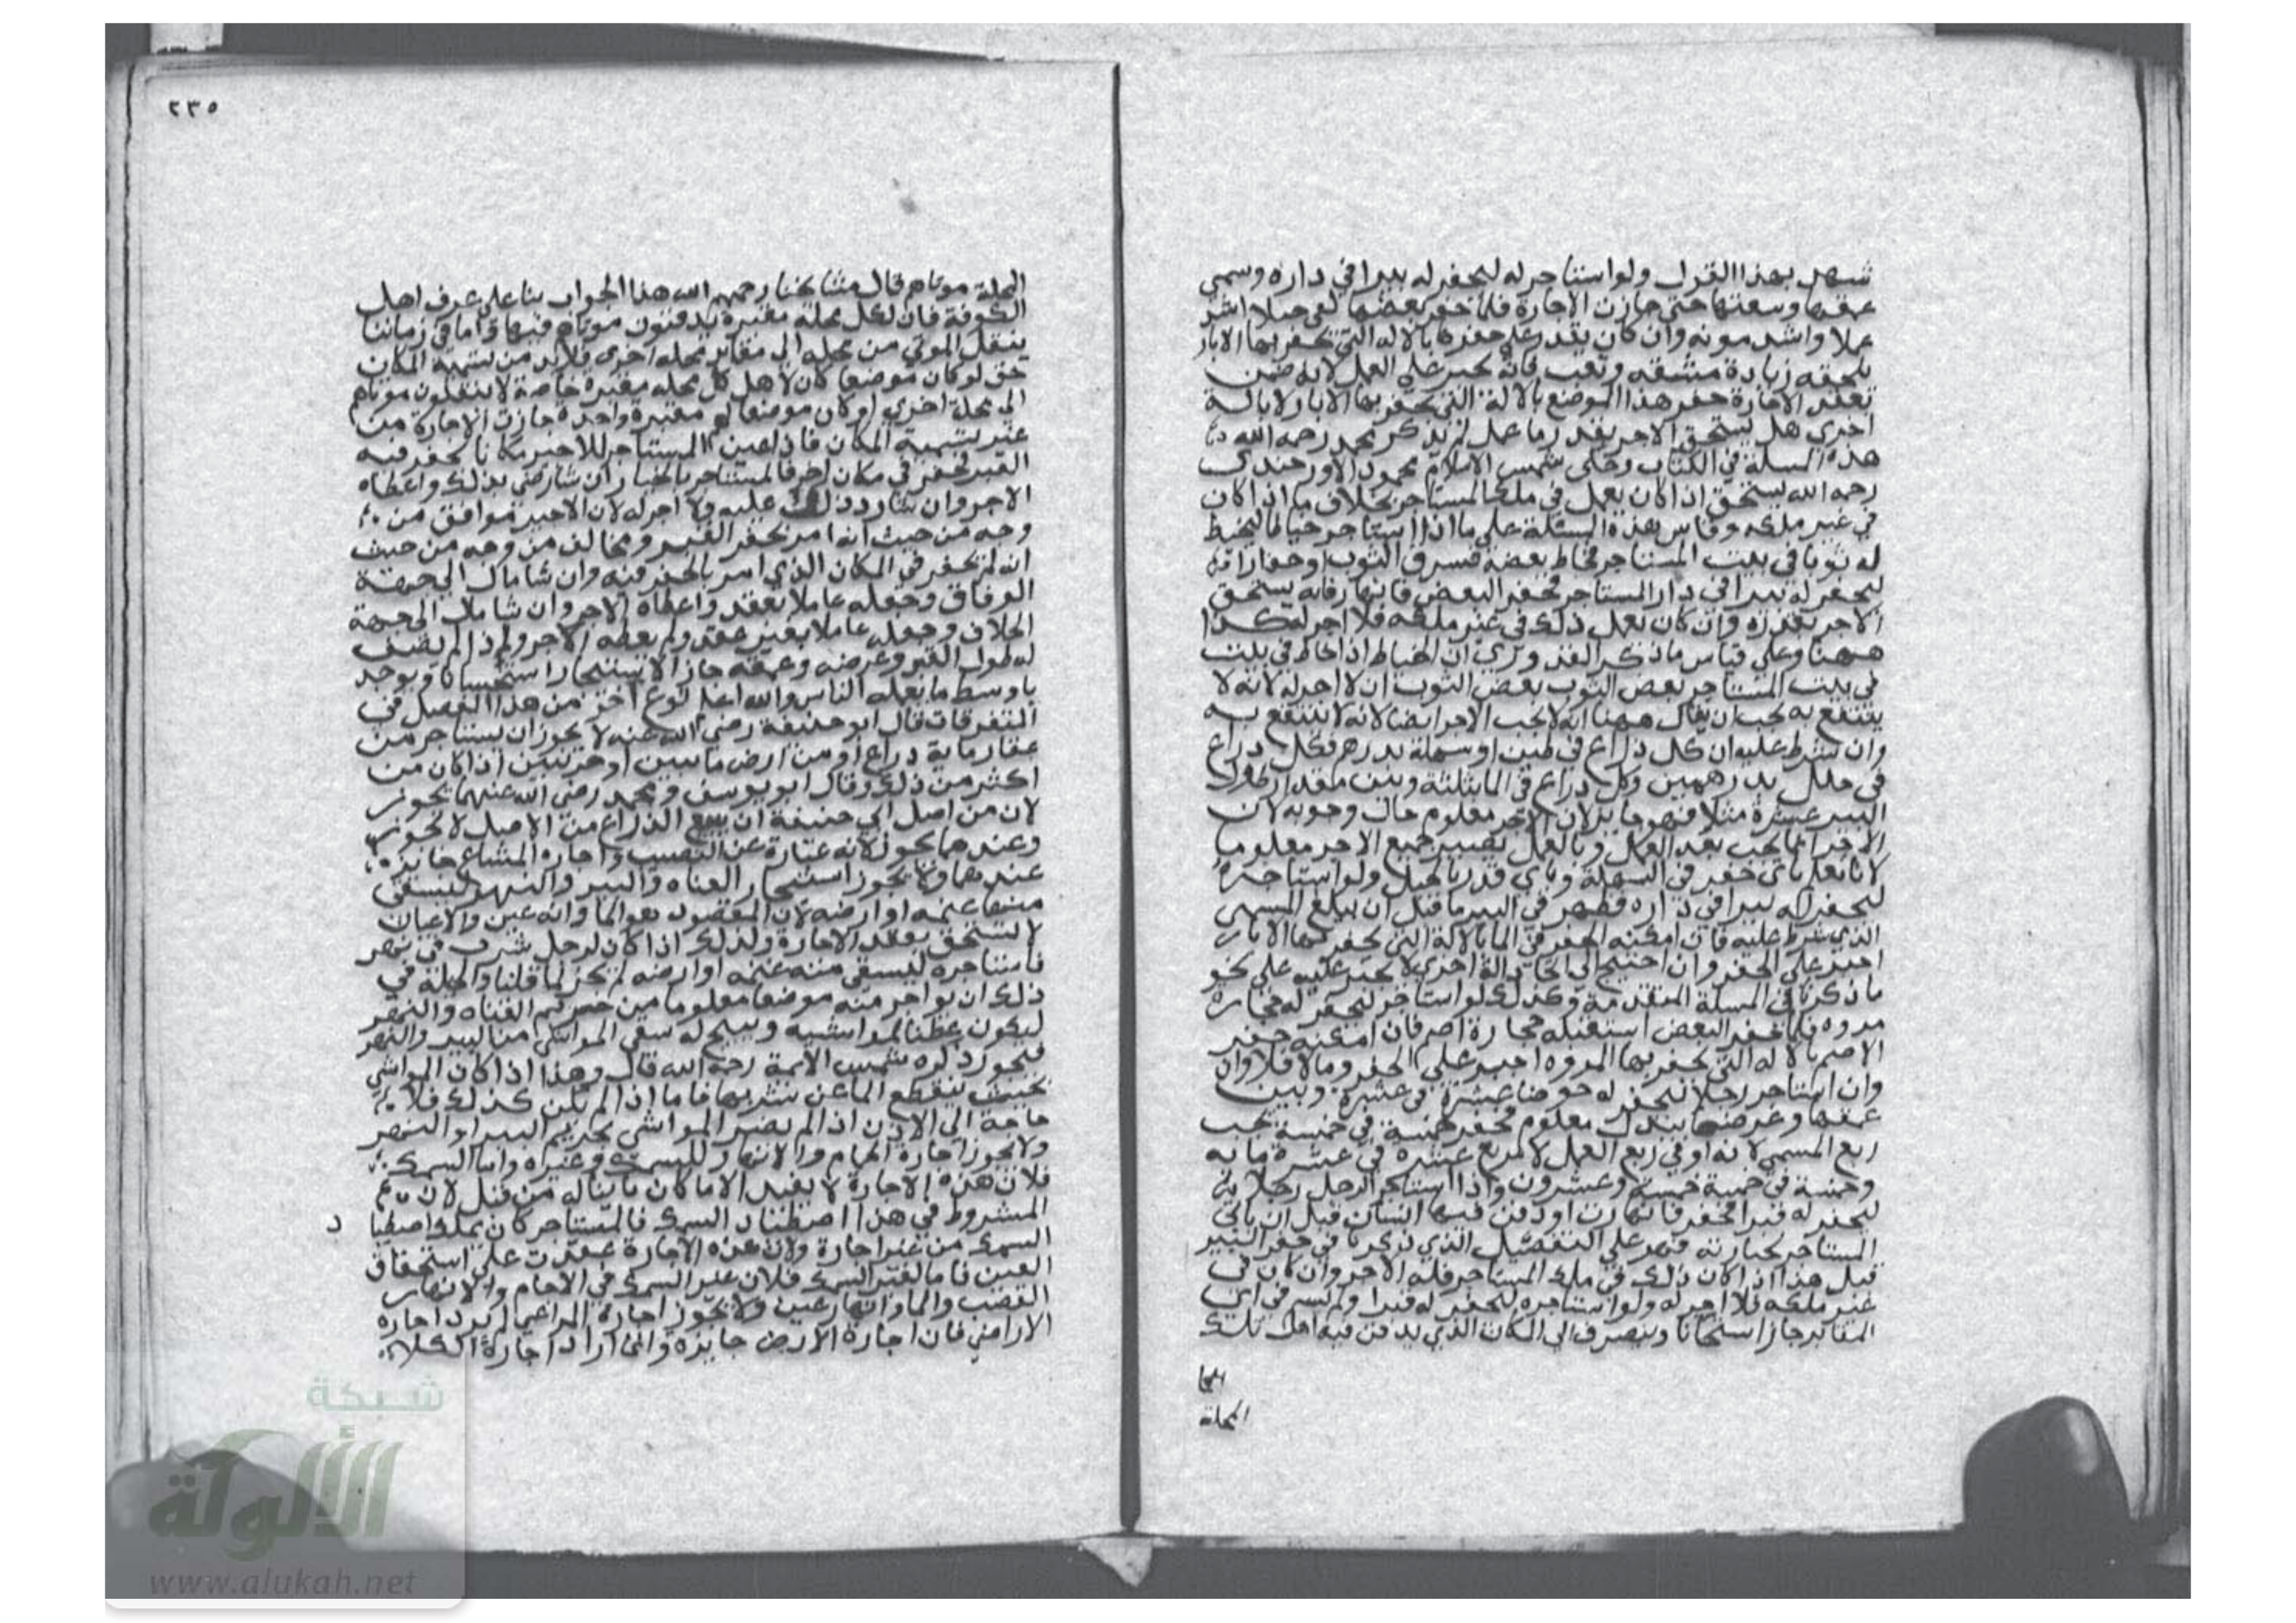 تسهل بهذا القدر ولو استاجر له ليحفر له بيرا في داره وسمى
عمقها وسعتها حتى جازت الاجارة فلما حفر بعضها لقي جبلا اشد
عملا واشد مونه وان كان يقدر على حفرها بالاله التي تحفر بها الابار
يلحقه زيادة مشقه وتعب فانه يجبر على العمل لانه ضمن
بعقد الاجارة حفر هذا الموضع بالالة التي يحفر بها الابار لا بالة
اخرى هل يستحق الاجر بقدر ما عمل لم يذكر محمد رحمه الله
هذه المسلة في الكتاب وحكى شمس الاسلام محمود الاوزجندي
رحمه الله يستحق اذا كان يعمل في ملك المستاجر بخلاف ما اذا كان
في غير ملكه وقاس هذه المسئلة على ما اذا استاجر خياطا ليخيط
له ثوبا في بيت المستاجر فخاط بعضه فسرق الثوب او حفارا
ليحفر له بيرا في دار المستاجر فحفر البعض فانهار فانه يستحق
الاجر بقدره وان كان يعمل ذلك في غير ملكه فلا اجر له كذا
ههنا وعلى قياس ما ذكر القدوري ان الخياط اذا خاط في بيت
في بيت المستاجر بعض الثوب بعض الثوب ان لا اجر له لانه لا
ينتفع به يجب ان يقال ههنا انه لا يجب الاجر ايضا لانه لا ينتفع به
وان شرط عليه ان كل ذراع في طين او سهلة بدرهم وكل ذراع
في جبل بدرهمين وكل ذراع في الما بثلثة وبين مقدار طول
البير عشرة مثلا فهو جايز لان الاجر معلوم حال وجوبه لان
الاجر انما يجب بعد العمل وبالعمل يصير جميع الاجر معلوما
لانا نعلم باي حفر في السهلة وباي قدر بالجبل ولو استاجره
ليحفر له بيرا في داره فظهر في البير ما قبل ان يبلغ المسمى
الذي شرط عليه فان امكنه الحفر في الما بالالة التي يحفر بها الابار
اجبر على الحفر وان احتيج الى اتخاذ الة اخرى لا يجبر عليه على نحو
ما ذكرنا في المسلة المتقدمة وكذلك لو استاجر ليحفر له في حجارة
مروه فلما حفر البعض استقبله حجارة اصم فان امكنه حفر
الاصم بالاله التي يحفر بها المروه اجبر على الحفر وما لا فلا وان
وان استاجر رجلا ليحفر له حوضا عشرة في عشرة وبين
عمقها وعرضها ببدل معلوم فحفر خمسة في خمسة يجب
ربع المسمى لانه اوفى ربع العمل لا مربع عشرة في عشرة مايه
وخمسة في خمسة خمسة وعشرون واذا استاجر الرجل رجلا
ليحفر له قبرا فحفر فانهارت او دفن فيها انسان قبل ان ياتي
المستاجر بجنازته فهو على التفصيل الذي ذكرنا في حفر البير
قيل هذا اذا كان ذلك في ملك المستاجر فله الاجر وان كان في
غير ملكه فلا اجر له ولو استاجره ليحفر له قبرا ولم يسم في اي
المقابر جاز استحسانا وينصرف الى المكان الذي يدفن فيه اهل تلك
المحلة
٢٣٥
المحلة موتاهم قال مشايخنا رحمهم الله هذا الجواب بنا على عرف اهل
الكوفة فان لكل محلة مقبرة يدفنون موتاهم فيها واما في زماننا
ينقل الموتى من محلة الى مقابر محلة اخرى فلا بد من تسمية المكان
حتى لو كان موضعا كان لاهل كل محله مقبرة خاصة لا ينقلون موتاهم
الى محلة اخرى او كان موضعا له مقبرة واحدة جازت الاجارة من
غير تسمية المكان فاذا عين المستاجر للاجير مكانا يحفر فيه
القبر فحفر في مكان اخر فالمستاجر بالخيار ان شا رضي بذلك واعطاه
الاجر وان شا رد ذلك عليه ولا اجر له لان الاجير موافق من
وجه من حيث انه امر بحفر القبر ومخالف من وجه من حيث
انه لم يحفر في المكان الذي امر بالحفر فيه وان شا مال الى جهة
الوفاق وجعله عاملا بعقد واعطاه الاجر وان شا مال الى جهة
الخلاف وجعله عاملا بغير عقد ولم يعطه الاجر واذا لم يصف
له طول القبر وعرضه وعمقه جاز الاستيجار استحسانا ويوخذ
باوسط ما يعمله الناس والله اعلم نوع اخر من هذا الفصل في
المتفرقات قال ابو حنيفة رضي الله عنه لا يجوز ان يستاجر من
عقار ماية ذراع او من ارض جريبين اذا كان من
اكثر من ذلك وقال ابو يوسف ومحمد رضي الله عنهما يجوز
لان من اصل ابي حنيفة ان بيع الذراع من الاصل لا يجوز
وعندهما يجوز لانه عبارة عن النصيب واجارة المشاع جايزه
عندهما ولا يجوز استيجار القناه والبير والنهر ليسقي
منها غنمه او ارضه لان المقصود هو الما وانه عين والاعيان
لا تستحق بعقد الاجارة وكذلك اذا كان لرجل شرب في نهر
فاستاجره ليسقي منه غنمه او ارضه لم يجز لما قلنا والحيلة في
ذلك ان يواجر منه موضعا معلوما من حريم القناه والنهر
ليكون عطنا لمواشيه ويبيح له سقي المواشي من البير والنهر
فيجوز ذكره شمس الايمة رحمه الله قال وهذا اذا كان المواشي
بحيث ينقطع الما عن شربها فاما اذا لم يكن كذلك فلا
حاجة الى الاذن اذا لم يضر المواشي بحريم البير او النهر
ولا يجوز اجارة الاجام والانهار للسمك وغيره واما السمك
فلان هذه الاجارة لا يفيد الا ما كان ثابتا له من قبل لان
المشروط في هذا اصطياد السمك فالمستاجر كان يملك اصطيا د
السمك من غير اجارة ولان هذه الاجارة عقدت على استحقاق
العين فاما لغير السمك فلان غير السمك في الاجام والانهار
القصب والما وانها عين ولا يجوز اجارة المراعي لم يرد اجارة
الاراضي فان اجارة الارض جايزه وانما اراد اجارة الكلا
شبكة
الألوكة
www.alukah.net